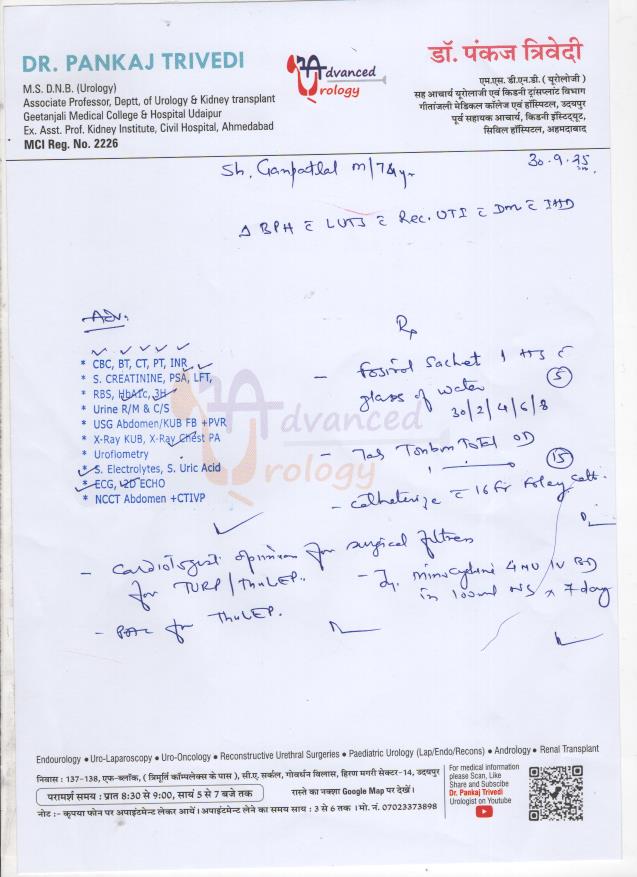 DR. PANKAJ TRIVEDI
M.S. D.N.B. (Urology)
Associate Professor, Deptt. of Urology & Kidney transplant
Geetanjali Medical College & Hospital Udaipur
Ex. Asst. Prof. Kidney Institute, Civil Hospital, Ahmedabad
MCI Reg. No. 2226
Advanced
Urology
डॉ. पंकज त्रिवेदी
एम.एस. डी.एन.बी. ( यूरोलोजी )
सह आचार्य यूरोलाजी एवं किडनी ट्रांसप्लांट विभाग
गीतांजली मेडिकल कॉलेज एवं हॉस्पिटल, उदयपुर
पूर्व सहायक आचार्य, किडनी इंस्टिट्यूट,
सिविल हॉस्पिटल, अहमदाबाद
Sh. Ganpatlal m/74yr
30.9.25
Δ BPH c̄ LUTS c̄ Rec. UTI c̄ Dm c̄ IHD
Adv.
* CBC, BT, CT, PT, INR
* S. CREATININE, PSA, LFT,
* RBS, HbA1c, 3H
* Urine R/M & C/S
* USG Abdomen/KUB FB +PVR
* X-Ray KUB, X-Ray Chest PA
* Uroflometry
* S. Electrolytes, S. Uric Acid
* ECG, 2D ECHO
* NCCT Abdomen +CTIVP
Rx
- Fosirol Sachet 1 HS c̄
glass of water (5)
30/2/4/6/8
- Tab OD
1 (15)
- Catheterize c̄ 16 Fr Foley Cath.
- Cardiologist opinion for surgical fitness
for TURP/ThuLEP.
- PAC for ThuLEP.
- Inj. Minocycline IV BD
in 100ml NS x 7day
Advanced
Urology
Endourology ● Uro-Laparoscopy ● Uro-Oncology ● Reconstructive Urethral Surgeries ● Paediatric Urology (Lap/Endo/Recons) ● Andrology ● Renal Transplant
निवास : 137-138, एफ-ब्लॉक, ( त्रिमूर्ति कॉम्पलेक्स के पास ), सी.ए. सर्कल, गोवर्धन विलास, हिरण मगरी सेक्टर-14, उदयपुर
परामर्श समय : प्रात 8:30 से 9:00, सायं 5 से 7 बजे तक
रास्ते का नक्शा Google Map पर देखें।
नोट :- कृपया फोन पर अपाइंटमेन्ट लेकर आयें। अपाइंटमेन्ट लेने का समय सायं : 3 से 6 तक । मो. नं. 07023373898
For medical information
please Scan, Like
Share and Subscibe
Dr. Pankaj Trivedi
Urologist on Youtube